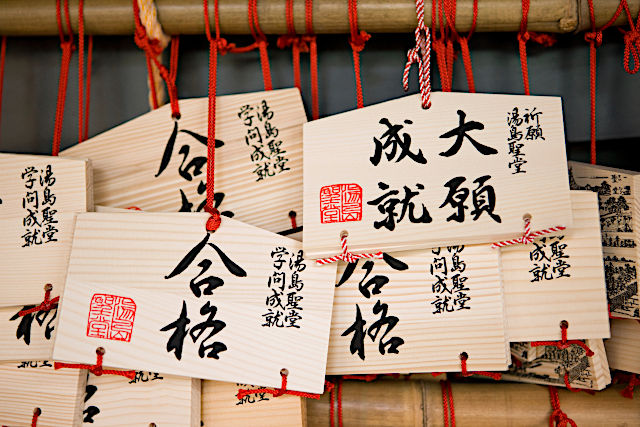 湯島聖堂
学問成就
合格
祈願
湯島聖堂
大願
成就
湯島聖堂
湯島聖堂
学問成就
湯島聖堂
学問成就
合格
湯島聖堂
湯島聖堂
学問成就
合格
成就
格